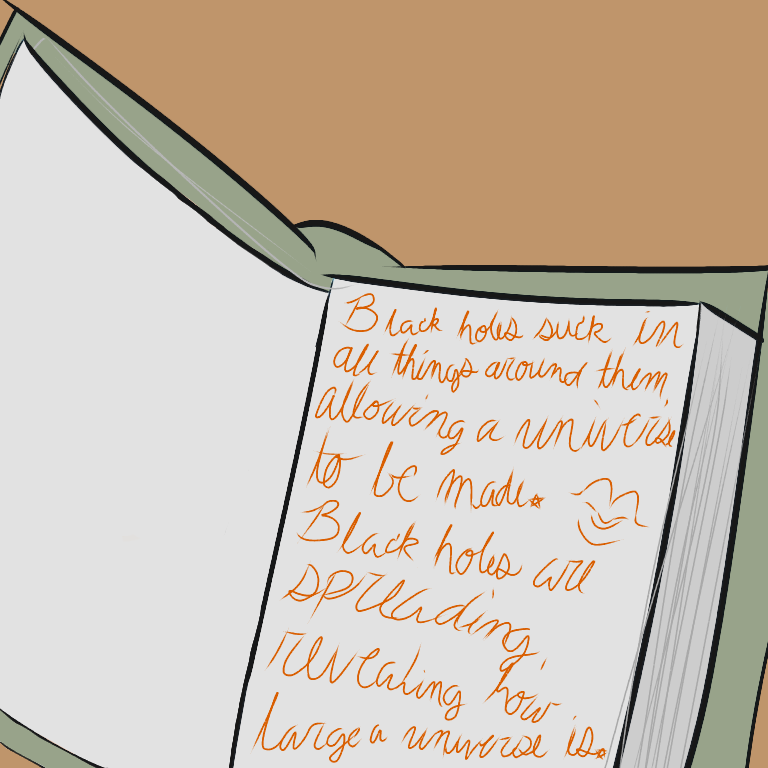 Black holes suck in
all things around them,
allowing a universe
to be made.
Black holes are
spreading,
revealing how
large a universe is.